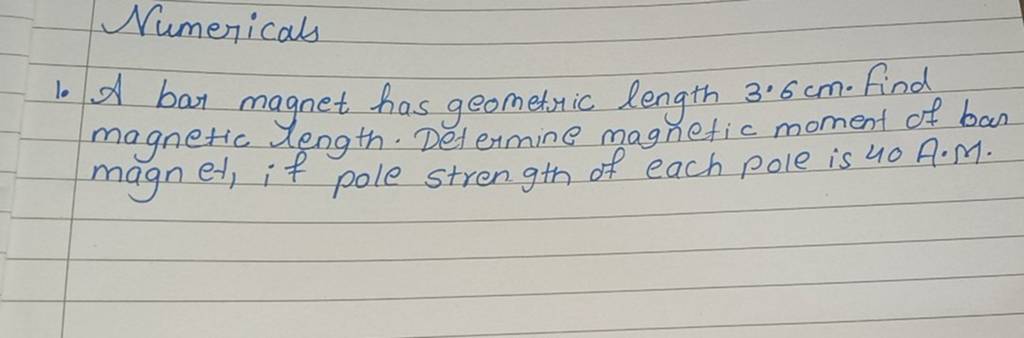 Numericals
1. A bar magnet has geometric length 3.6cm. Find
magnetic length. Determine magnetic moment of bar
magnet, if pole strength of each pole is 40 A.M.